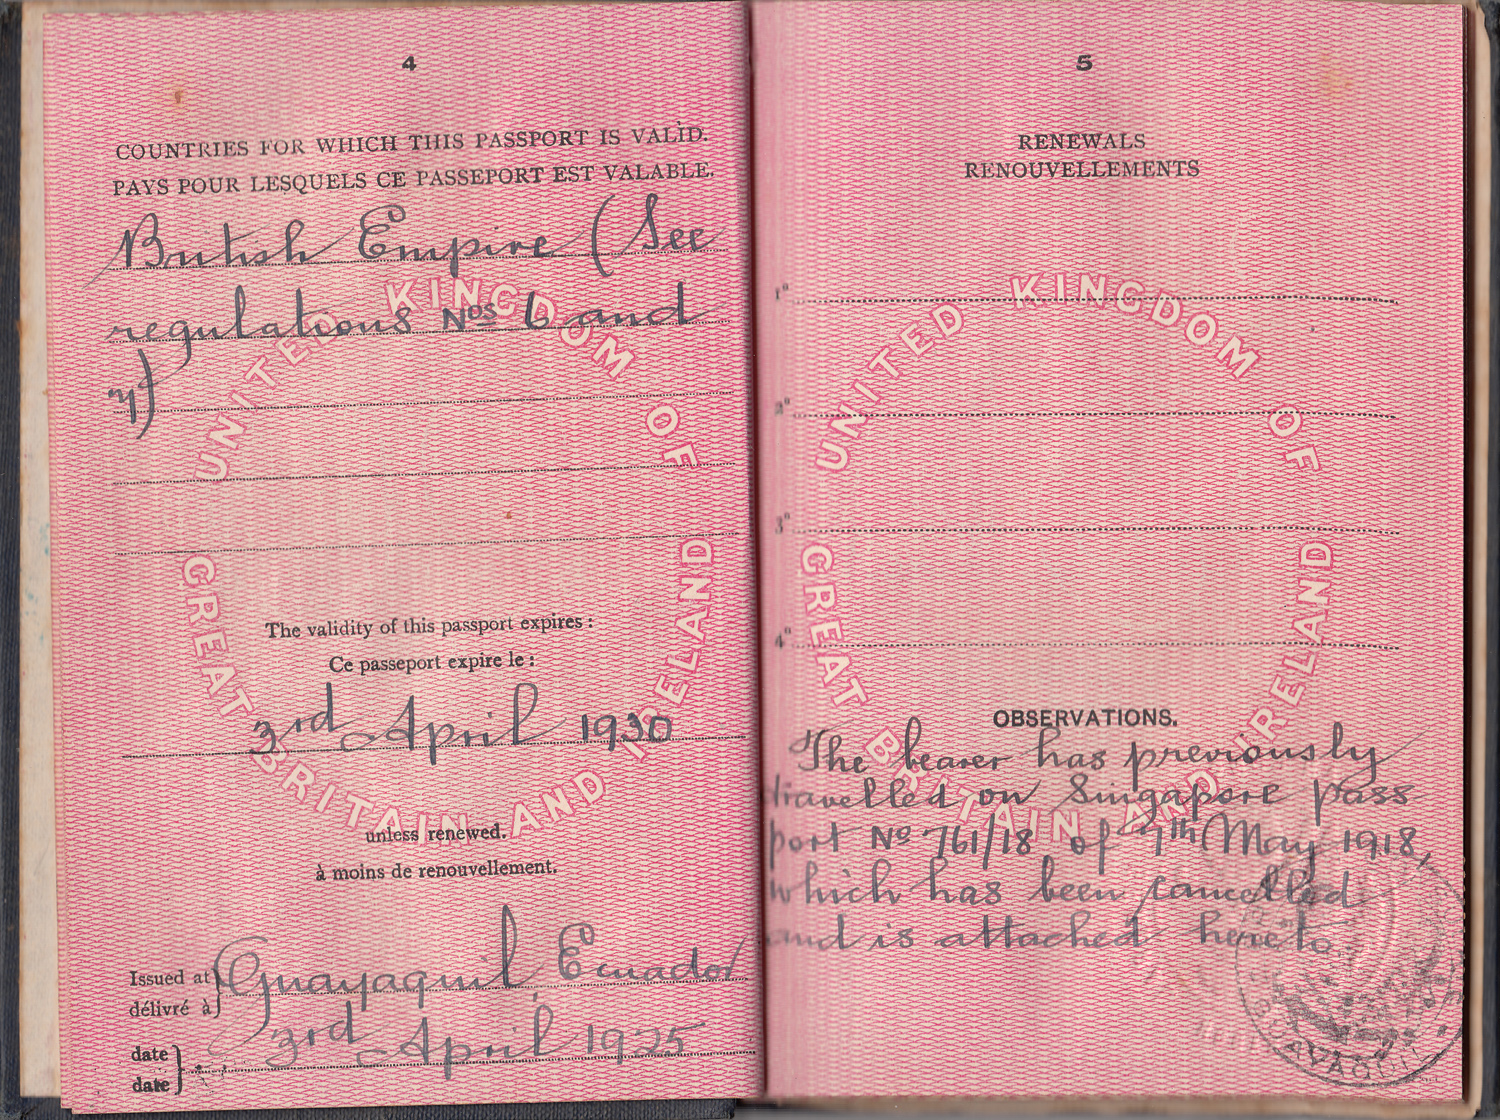 4
COUNTRIES FOR WHICH THIS PASSPORT IS VALID.
PAYS POUR LESQUELS CE PASSEPORT EST VALABLE.
British Empire (See
regulations Nos 6 and
7)
UNITED KINGDOM OF
GREAT BRITAIN AND IRELAND
The validity of this passport expires:
Ce passeport expire le:
3rd April 1930
unless renewed.
à moins de renouvellement.
Issued at
délivré à
Guayaquil, Ecuador
date
date
3rd April 1925
5
RENEWALS
RENOUVELLEMENTS
1º
2º
3º
4º
UNITED KINGDOM OF
GREAT BRITAIN AND IRELAND
OBSERVATIONS.
The bearer has previously
travelled on Singapore pass
port No 761/18 of 7th May 1918,
which has been cancelled
and is attached hereto.